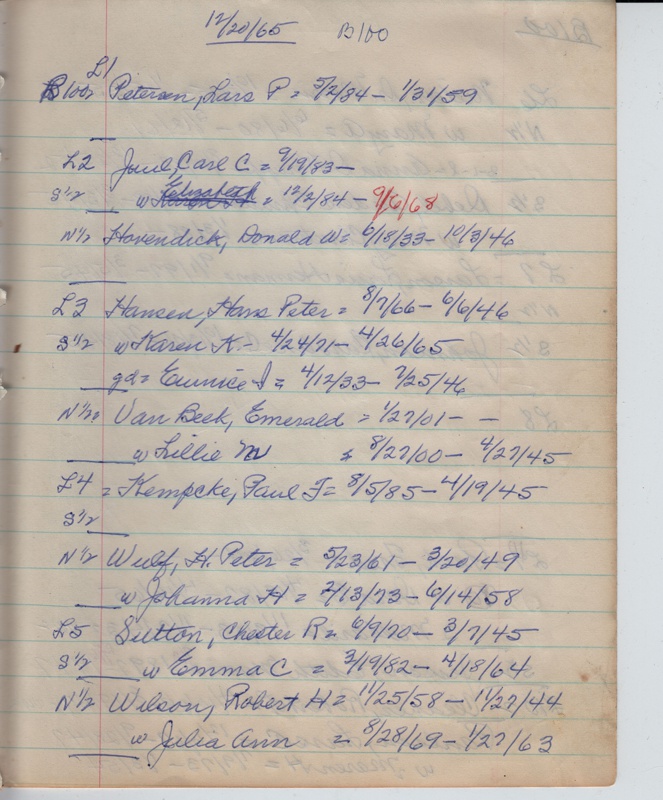 12/20/65 B100
L1
B100 Petersen, Lars P = 5/2/84 - 1/31/59
L2 Juul, Carl C. = 9/19/83 -
S 1/2 w Elizabeth = 12/2/84 - 9/6/68
N 1/2 Hovendick, Donald W = 6/18/33 - 10/3/46
L3 Hansen, Hans Peter = 8/7/66 - 6/6/46
S 1/2 w Karen K. - 4/24/71 - 4/26/65
gd = Eunice I = 4/12/33 - 7/25/46
N 1/2 = Van Beek, Emerald = 1/27/01 - -
w Lillie M = 8/27/00 - 4/27/45
L4 = Kempcke, Paul F = 8/5/85 - 4/19/45
S 1/2
N 1/2 Wulf, H. Peter = 5/23/61 - 3/20/49
w Johanna H = 2/13/73 - 6/14/58
L5 Sutton, Chester R = 6/9/70 - 3/7/45
S 1/2 w Emma C = 3/19/82 - 4/18/64
N 1/2 Wilson, Robert H = 11/25/58 - 11/27/44
w Julia Ann = 8/28/69 - 1/27/63